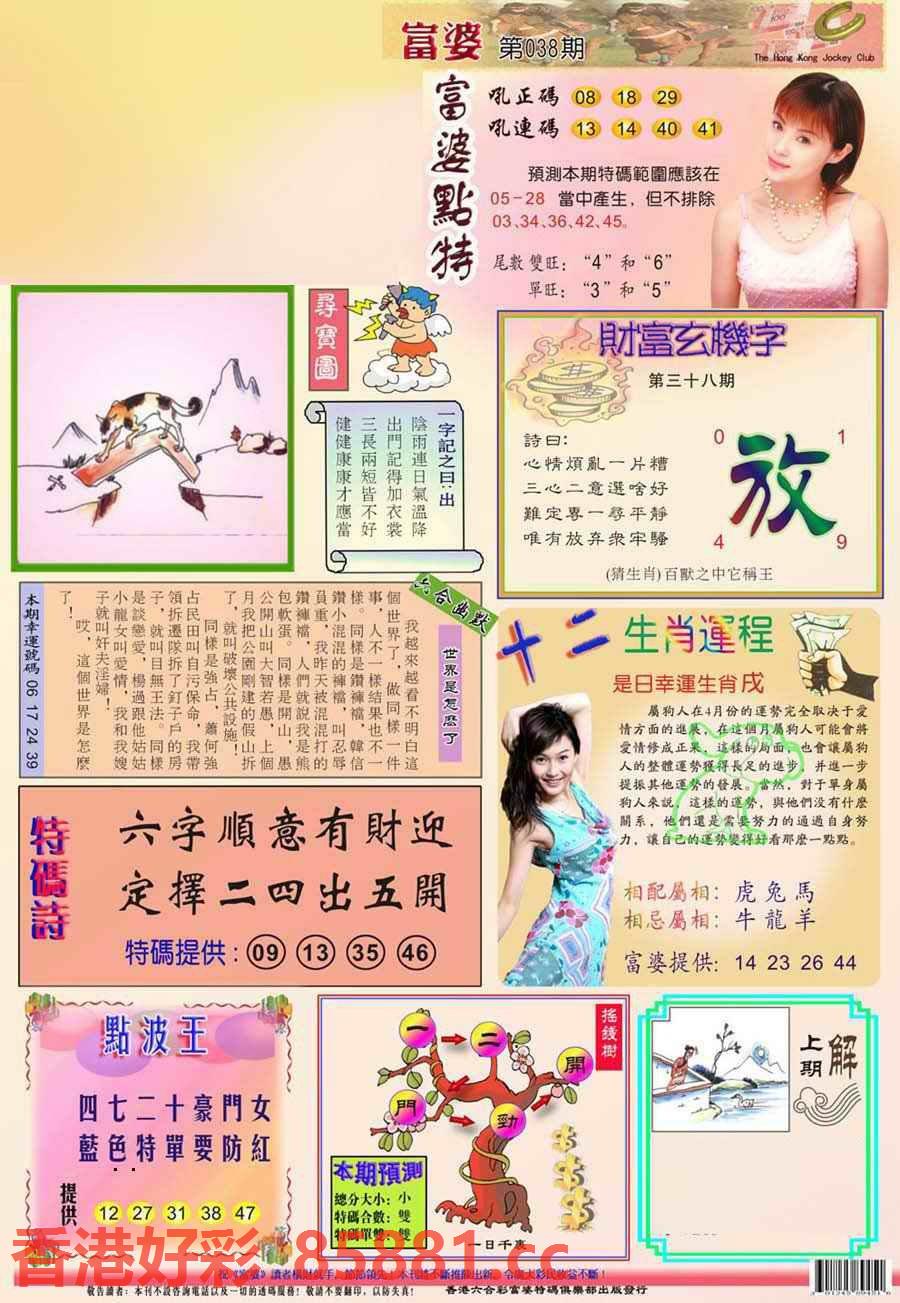 富婆 第038期
The Hong Kong Jockey Club
富婆點特
吼正碼 08 18 29
吼連碼 13 14 40 41
預測本期特碼範圍應該在
05-28 當中產生，但不排除
03、34、36、42、45。
尾數雙旺：“4”和“6”
單旺：“3”和“5”
尋寶圖
一字記之曰：出
陰雨連日氣溫降
出門記得加衣裳
三長兩短皆不好
健健康康才應當
財富玄機字
第三十八期
詩曰：
心情煩亂一片糟
三心二意選啥好
難定專一尋平靜
唯有放弃衆牢騷
0 1
放
4 9
(猜生肖)百獸之中它稱王
六合幽默
世界是怎麽了
我越來越看不明白這
個世界了，做同樣一件
事，人不一樣結果也不一
樣。同樣是鑽褲襠，韓信
鑽小混混的褲襠，叫忍辱
負重，我昨天被混混打的
鑽褲襠，人們就說我是熊
包軟蛋。同樣是開山，愚
公開山叫大智若愚，上個
月我把公園剛建的假山拆
了，就叫破壞公共設施！
同樣是強占，蕭何強
占民田叫自污保命，我帶
領拆遷隊拆了釘子戶的房
子，就叫目無王法。同樣
是談戀愛，楊過跟他姑姑
小龍女叫愛情，我和我嫂
子就叫奸夫淫婦！
哎，這個世界是怎麽
了！
本期幸運號碼 06 17 24 39
十二生肖運程
是日幸運生肖戌
屬狗人在4月份的運勢完全取决于愛
情方面的進展，在這個月屬狗人可能會將
愛情修成正果，這樣的局面，也會讓屬狗
人的整體運勢獲得長足的進步，并進一步
提振其他運勢的發展，當然，對于單身屬
狗人來說，這樣的運勢，與他們没有什麽
關系，他們還是需要努力的通過自身努
力，讓自己的運勢變得好看那麽一點點。
相配屬相：虎兔馬
相忌屬相：牛龍羊
富婆提供：14 23 26 44
特碼詩
六字順意有財迎
定擇二四出五開
特碼提供：09 13 35 46
點波王
四七二十豪門女
藍色特單要防紅
提供 12 27 31 38 47
搖錢樹
一 二 開
門 勁
本期預測
總分大小：小
特碼合數：雙
特碼單雙：雙
一日千裏
上期解
香港好彩 85881.cc
敬告讀者：本刊不設咨詢電話以及一切的透碼服務！敬請不要翻印，以防失真！
香港六合彩富婆特碼俱樂部出版發行